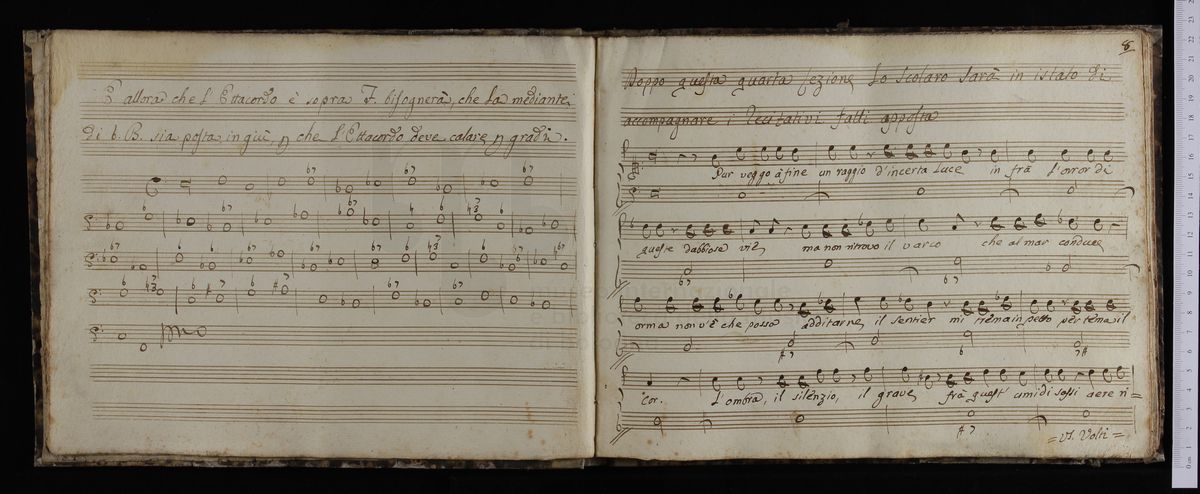 E allora che l'Ettacordo è sopra F. bisognerà, che la mediante
di b. B. sia posta in giù, che l'Ettacordo deve calare gradi.
8
Doppo questa quarta Lezione Lo Scolaro Sarà in istato di
accompagnare i Recitativi fatti apposta
Pur veggo à fine un raggio d'incerta Luce in frà l'orror di
queste dabbiose vie, ma non ritrovo il varco che al mar conduce
orma non v'è che possa additarne, il sentier mi tréma in petto per téma il
Cor. L'ombra, il silénzio, il grave, frà quest' umidi sassi aere ri=
=Vi. Volti=